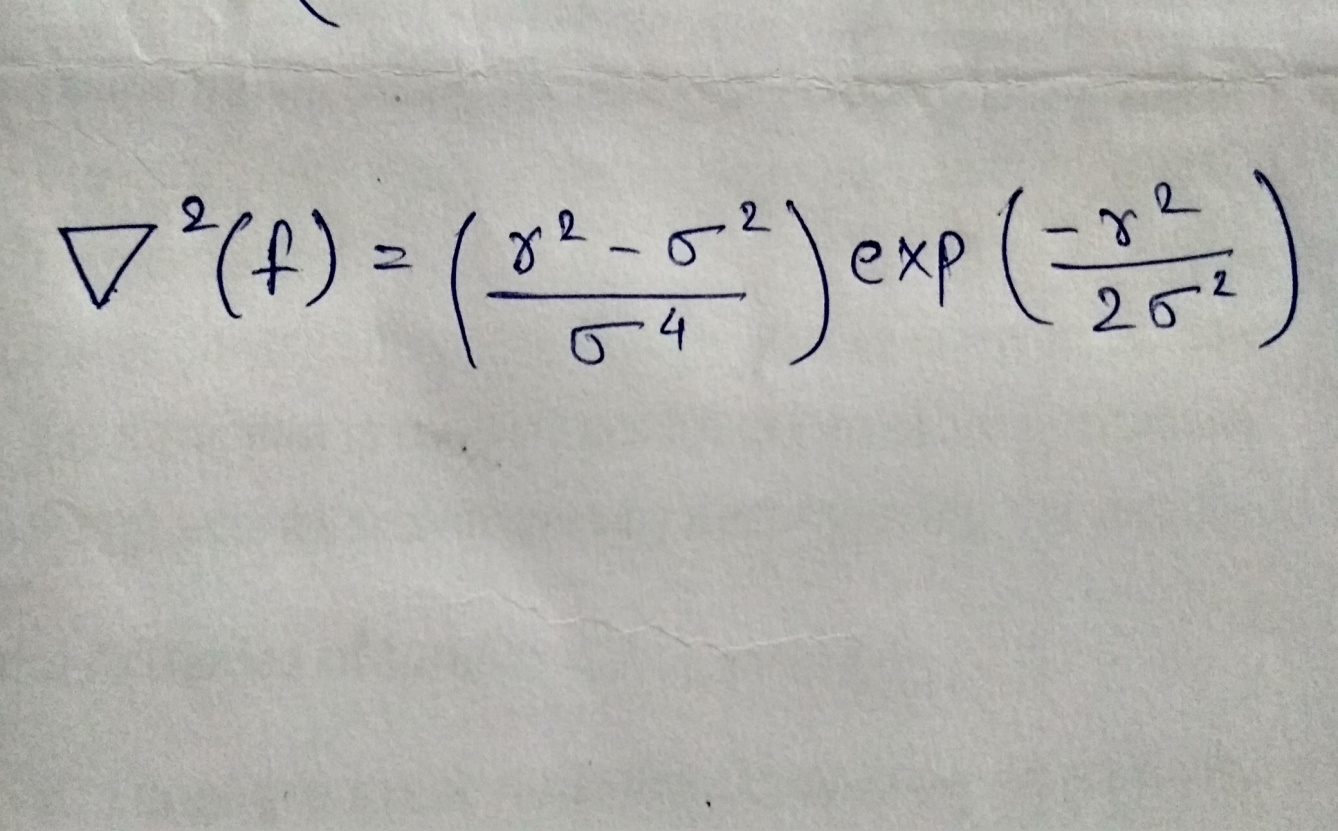 ∇²(f) = ( (r² - σ²) / σ⁴ ) exp ( -r² / 2σ² )